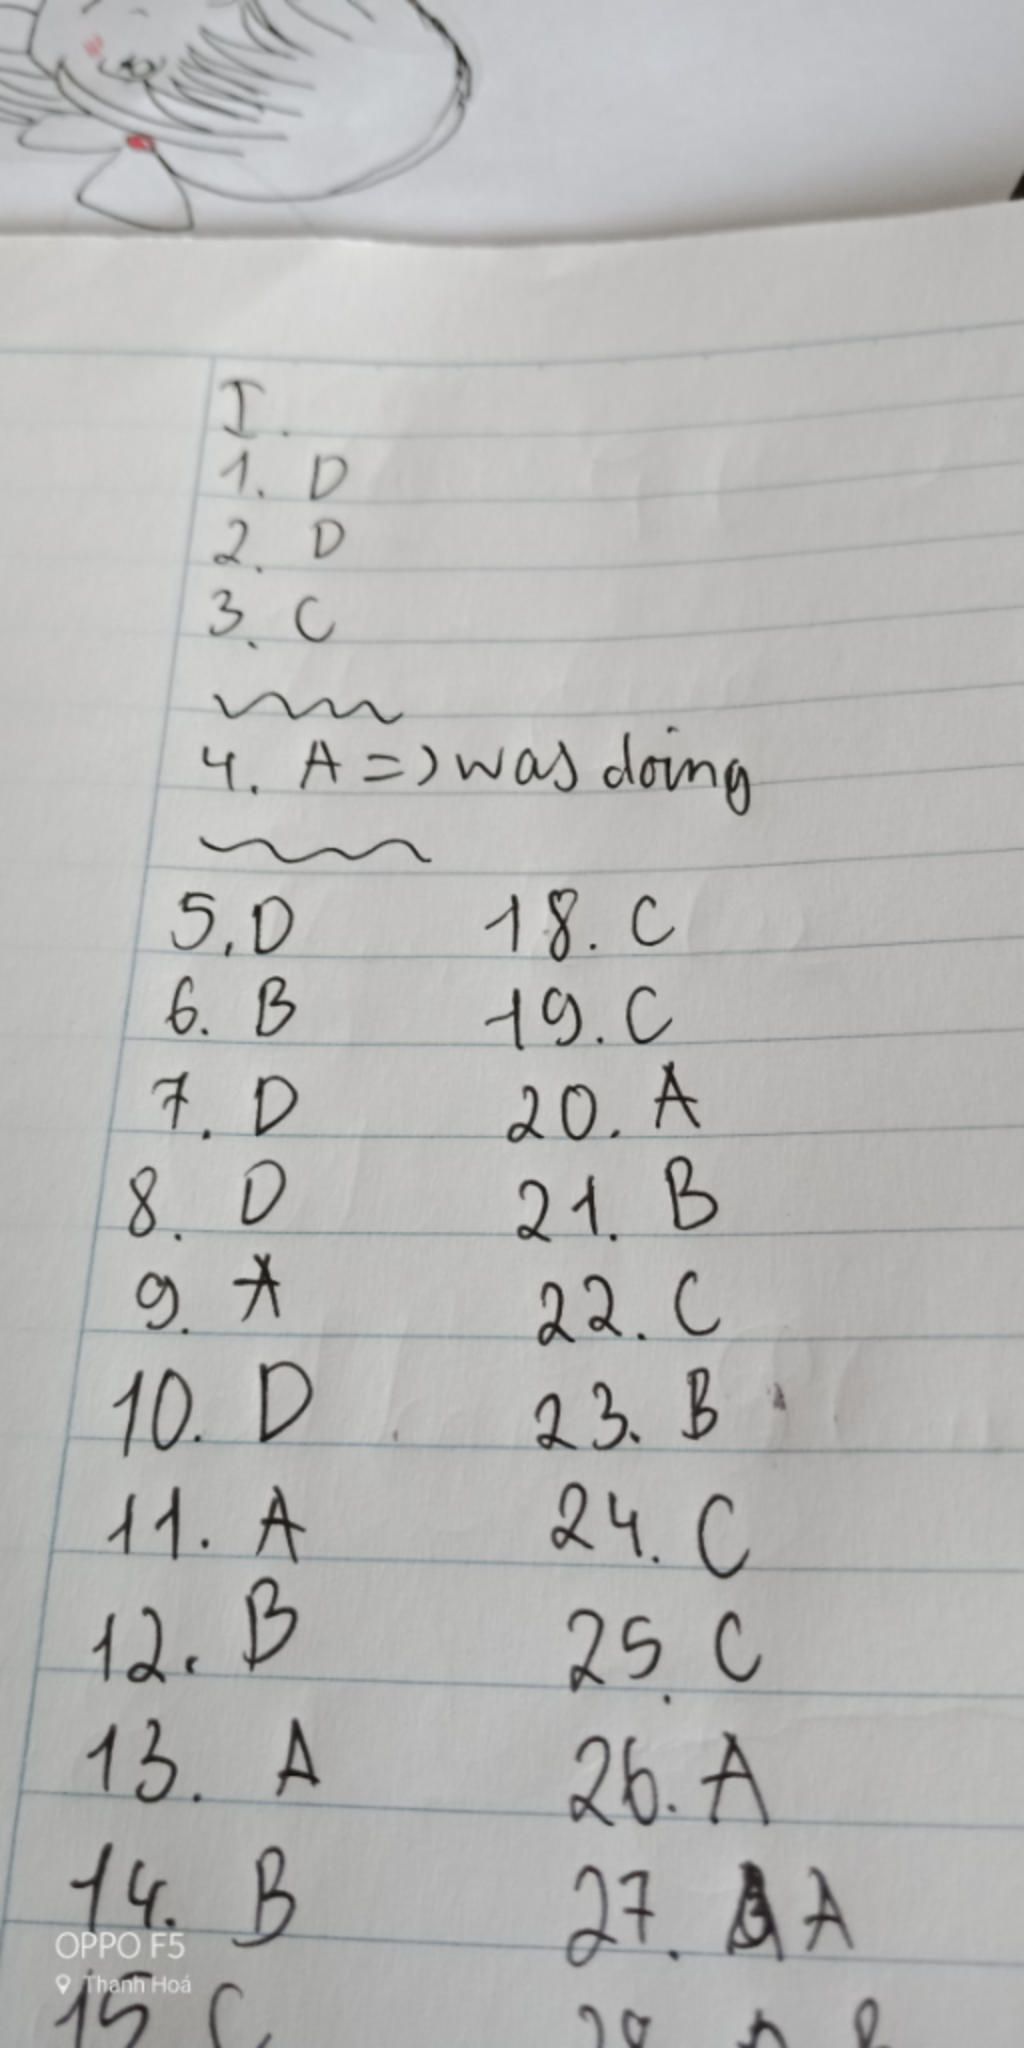 I.
1. D
2. D
3. C
4. A => was doing
5. D
6. B
7. D
8. D
9. A
10. D
11. A
12. B
13. A
14. B
15 C
18. C
19. C
20. A
21. B
22. C
23. B
24. C
25. C
26. A
27. A
OPPO F5
Thanh Hoá